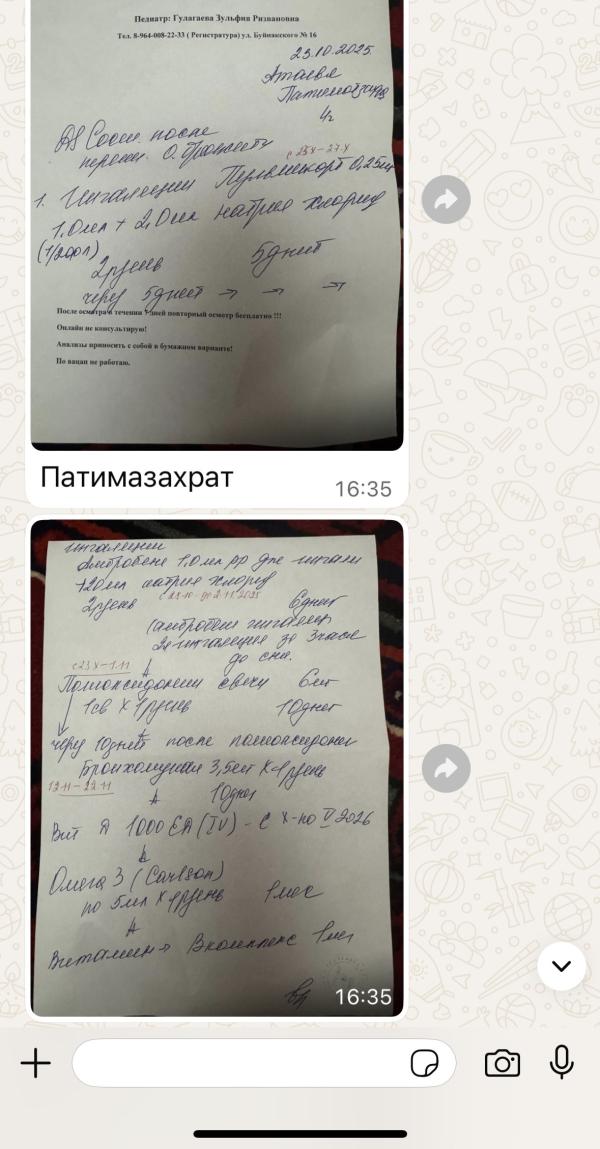 Педиатр: Гулагаева Зульфия Ризвановна
Тел. 8-964-008-22-33 ( Регистратура) ул. Буйнакского № 16
23.10.2025.
4г
DS Сост. после
перенес. О.
с 23.X – 27.X
1. Ингаляции Пульмикорт 0,25мг
1,0мл + 2,0мл натрия хлорид
2р/день 5дней
через 5дней → → →
После осмотра в течении 7 дней повторный осмотр бесплатно !!!
Онлайн не консультирую!
Анализы приносить с собой в бумажном варианте!
По вацап не работаю.
Патимазахрат
16:35
ингаляции
Амбробене 1,0мл р-р для ингаляц
+2,0мл натрия хлорид
2р/день 6дней
(амбробене ингаляция
2я ингаляция за 3часа
до сна.
с 23.X – 1.11
Полиоксидоний свечи 6мг
1св X 1р/день 10дней
через 10дней после полиоксидоний
Бронхомунал 3,5мг X 1р/день
12.11 – 22.11
10дней
Вит Д 1000 ЕД (IV) – с X–по V 2026
Омега 3 (Carlson)
по 5мл X 1р/день 1мес
Витамин В комплекс 1мес
16:35